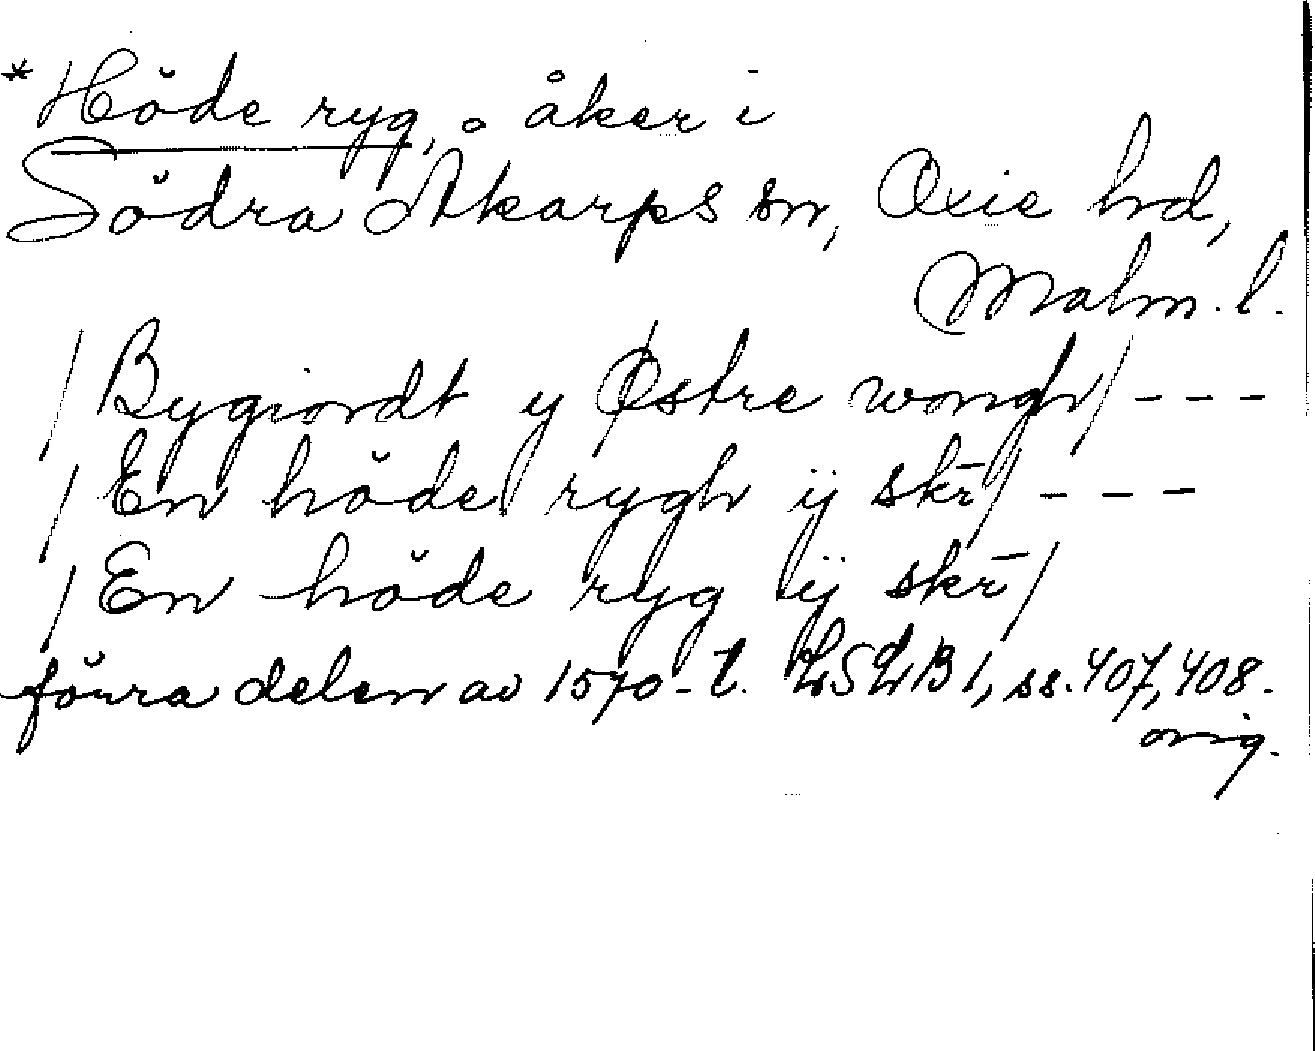 *Höde ryg, åker i
Södra Åkarps sn, Oxie hd,
Malm. l.
/Bygiordt y Østre wongh/ ---
/En höde rygh ij skr̄/ ---
/En höde ryg ij skr̄/
förra delen av 1570-t. LSLB 1, ss. 407, 408.
orig.